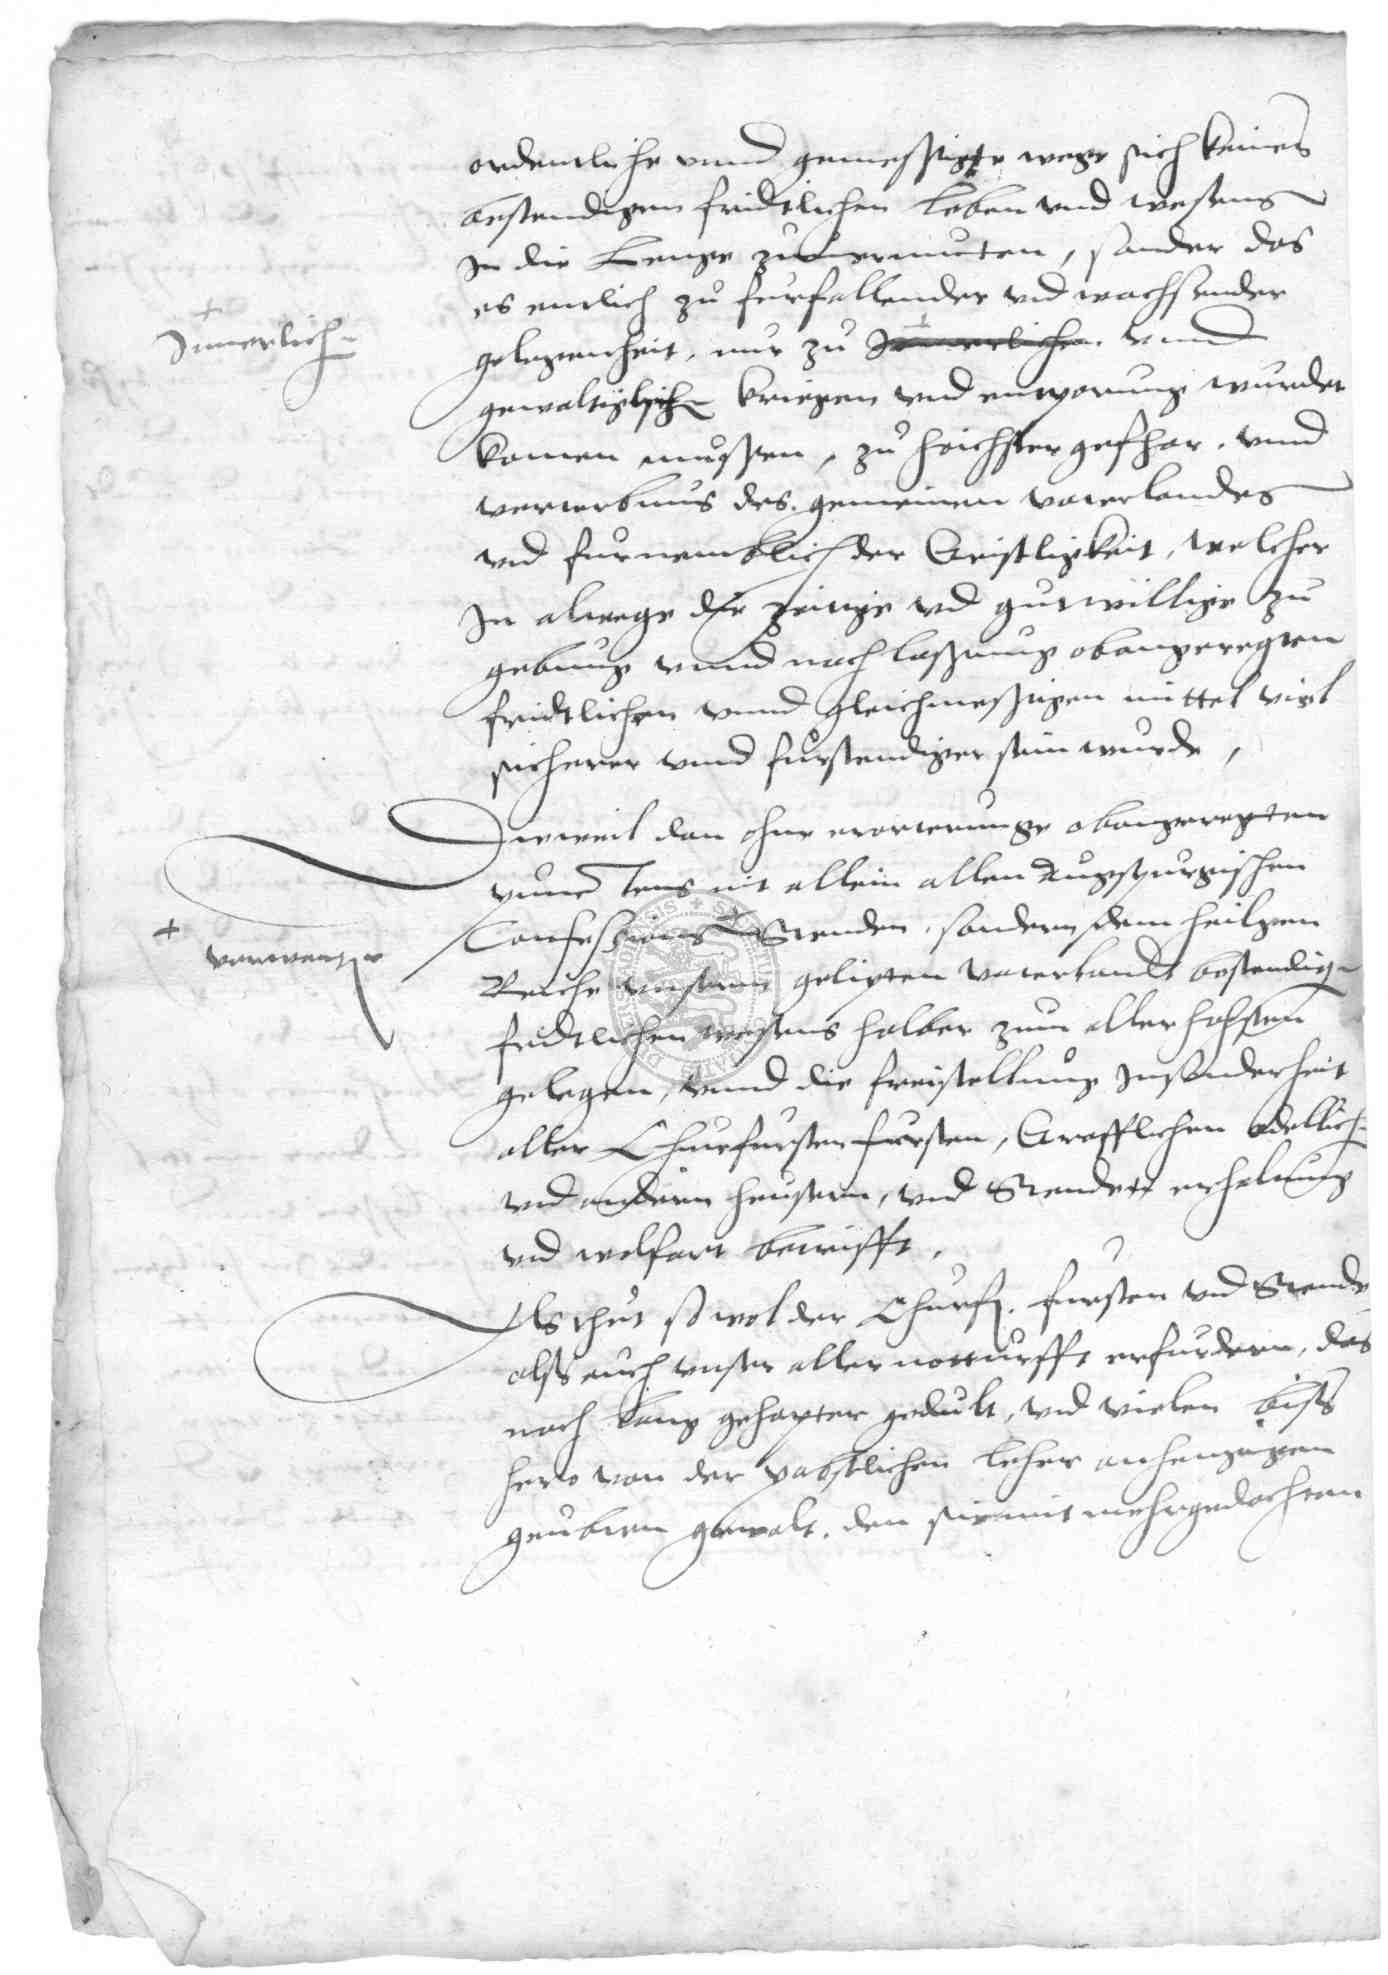 ordentliche vnnd gemessigte wege sich keines
bestendigen fridtlichen leben vnd wesens
In die lenge zuuermuten, sonder das
es entlich zu furfallender vnd wachsender
gelegenheit, nur zu Innerlichen vnnd
Innerlich-
gewaltiglich- kriegen vnd emporung wurdet
komen mussen, zu hoichster gefhar, vnnd
verterbnus des gemeinen vaterlandes
vnd furnemblich der Geistligkeit, welcher
In alwege die zeitige vnd gutwillige zu
gebung vnnd nachlassung obangeregten
fridtlichen vnnd gleichmessigen mittel viel
sicherer vnnd furstendiger sein wurde,
Dieweil dan ohne erorterunge obangeregten
puncTens nit allein allen Augspurgischen
Confessions Stenden, sondern dem heilgen
verwante
Reiche vnserm geliepten vaterlandt bestendig-
fridtlichen wesens halber zum aller hohsten
gelegen, vnnd die freistellung Insonderheit
aller Churfursten fursten, Grafflichen adellich-
vnd andern heusern, vnd Stenden erhaltung
vnd wolfart betrifft,
Als thut so wol der Churf. fursten vnd Stende
alss auch vnser aller notturfft erfurdern, das
nach lang gehapter gedult, vnd vielen biss
hero von der pabstlichen leher anhengigen
geubten gewalt, den sie mit mehrgedachten